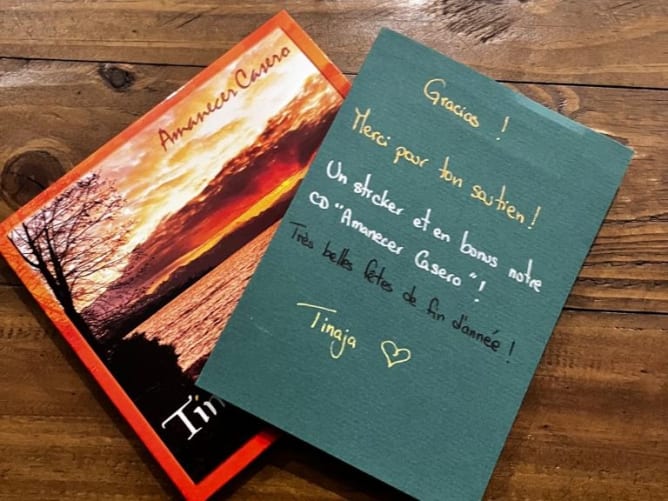 Amanecer Casero
Tin
Gracias !
Merci pour ton soutien !
Un sticker et en bonus notre
CD "Amanecer Casero" !
Très belles fêtes de fin d'année !
Tinaja